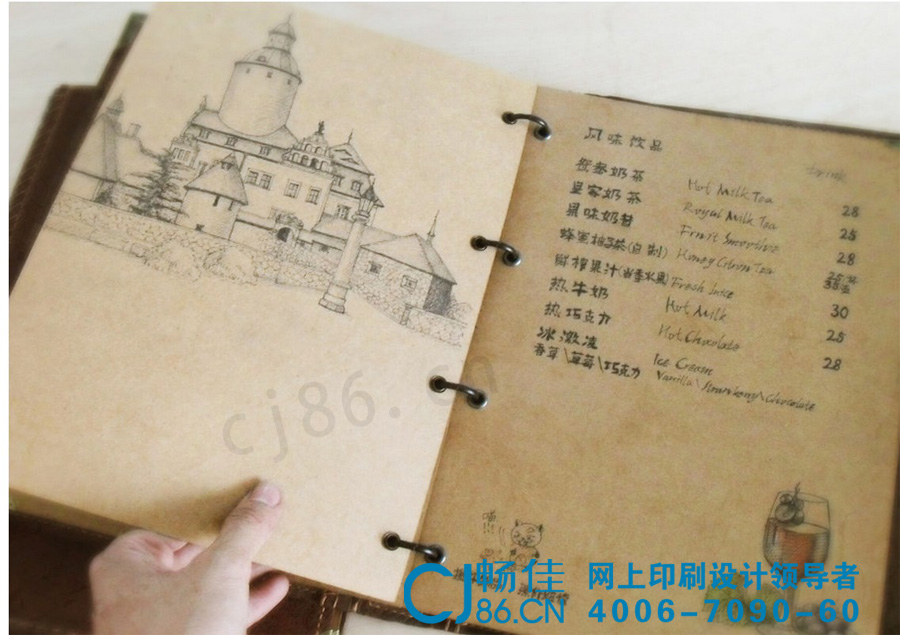 风味饮品
鸳鸯奶茶 Hot Milk Tea 28
皇家奶茶 Royal Milk Tea 25
果味奶昔 28
蜂蜜柚子茶(自制) Honey Citron Tea
鲜榨果汁(当季水果) Fresh Juice 30
热牛奶 Hot Milk 25
热巧克力 Hot Chocolate 28
冰激凌 Ice Cream
香草\草莓\巧克力 Vanilla\Strawberry\Chocolate
喵!!!
cj86.cn
CJ畅佳
86.CN
网上印刷设计领导者
4006-7090-60